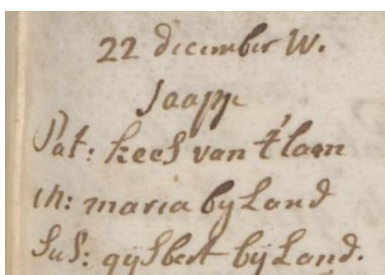 22 december W.
Jaapje
Pat: kees van t'lam
m: maria byLand
Sus: gijsbert bijLand.